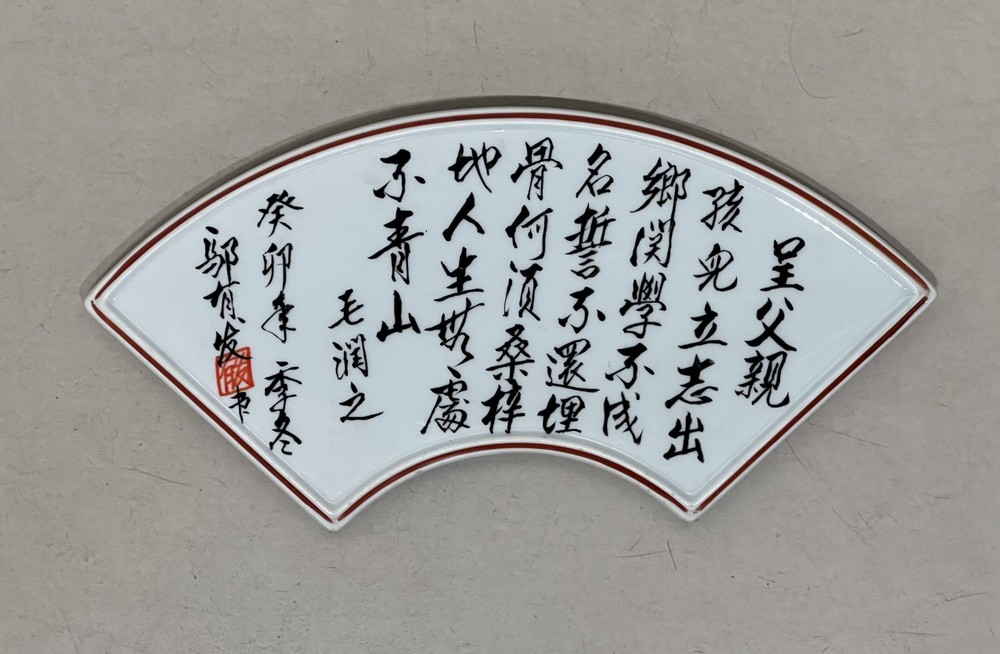 呈父親
孩兒立志出
鄉関學不成
名誓不還埋
骨何須桑梓
地人生無處
不青山
毛潤之
癸卯年季冬
鄔有发书